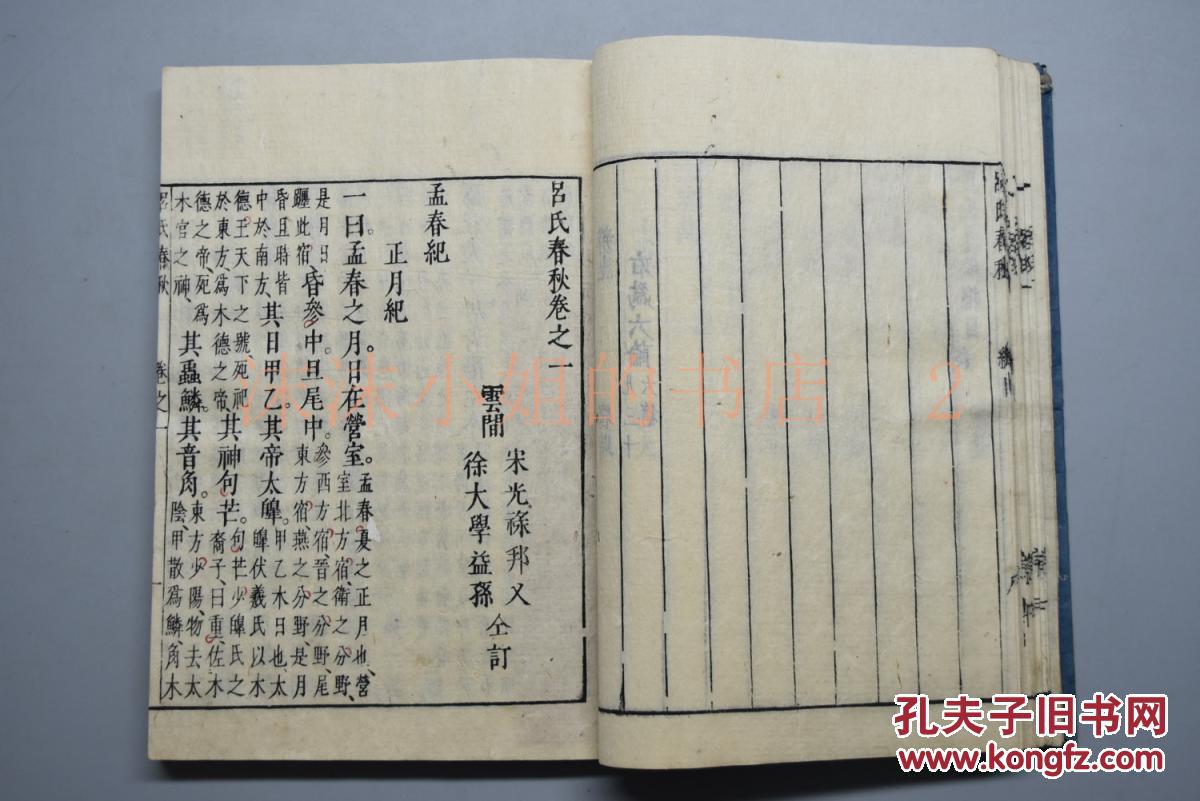 呂氏春秋卷之一
雲間
宋光祿邦乂
徐大學益孫
仝訂
孟春紀
正月紀
一曰。孟春之月。日在營室。孟春、夏之正月也、營室、北方宿、衛之分野、
是月日躔此宿昏參中。旦尾中。參西方宿、晉之分野、尾東方宿、燕之分野、是月
昏旦時皆中於南方、其日甲乙。其帝太皥。甲乙木日也、太皥伏羲氏以木
德王天下之號、死祀於東方、爲木德之帝、其神句芒。句芒、少皥氏之裔子、曰重、佐木
德之帝、死爲木官之神、其蟲鱗。其音角。東方少陽、物去太陰、甲散爲鱗、角木
呂氏春秋
卷之一
一
呂氏春秋
沫沫小姐的书店
2
孔夫子旧书网
www.kongfz.com